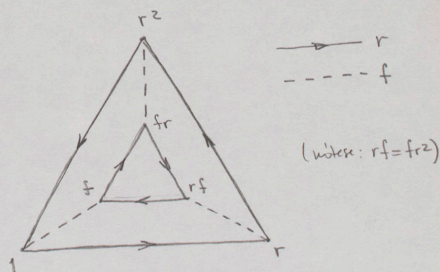 r²
r
f
fr
(nótese: rf = fr²)
f
rf
1
r